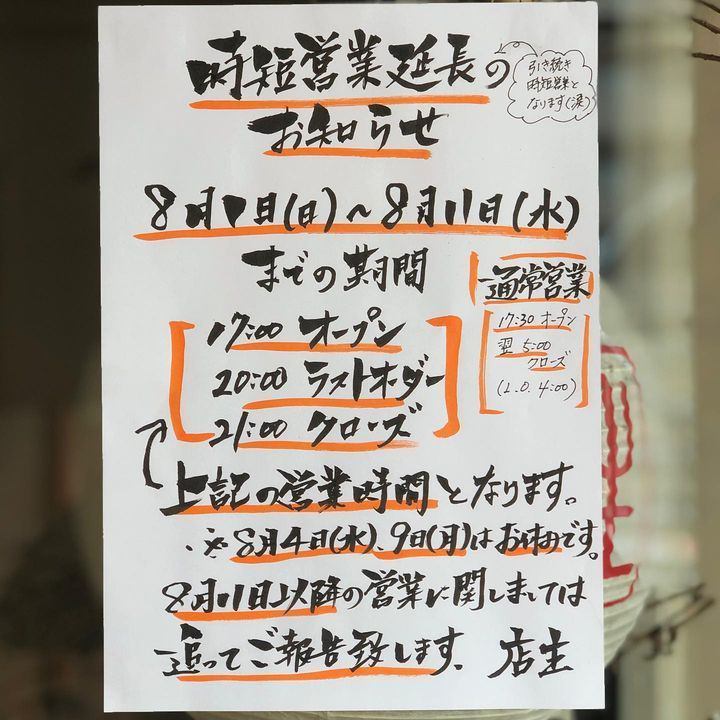 時短営業延長の
お知らせ
引き続き
時短営業と
なります(涙)
8月1日(日)～8月11日(水)
までの期間
17:00 オープン
20:00 ラストオーダー
21:00 クローズ
通常営業
17:30 オープン
翌 5:00
クローズ
(L.O. 4:00)
上記の営業時間となります。
※8月4日(水)、9日(月)はお休みです。
8月11日以降の営業に関しましては
追ってご報告致します、店主